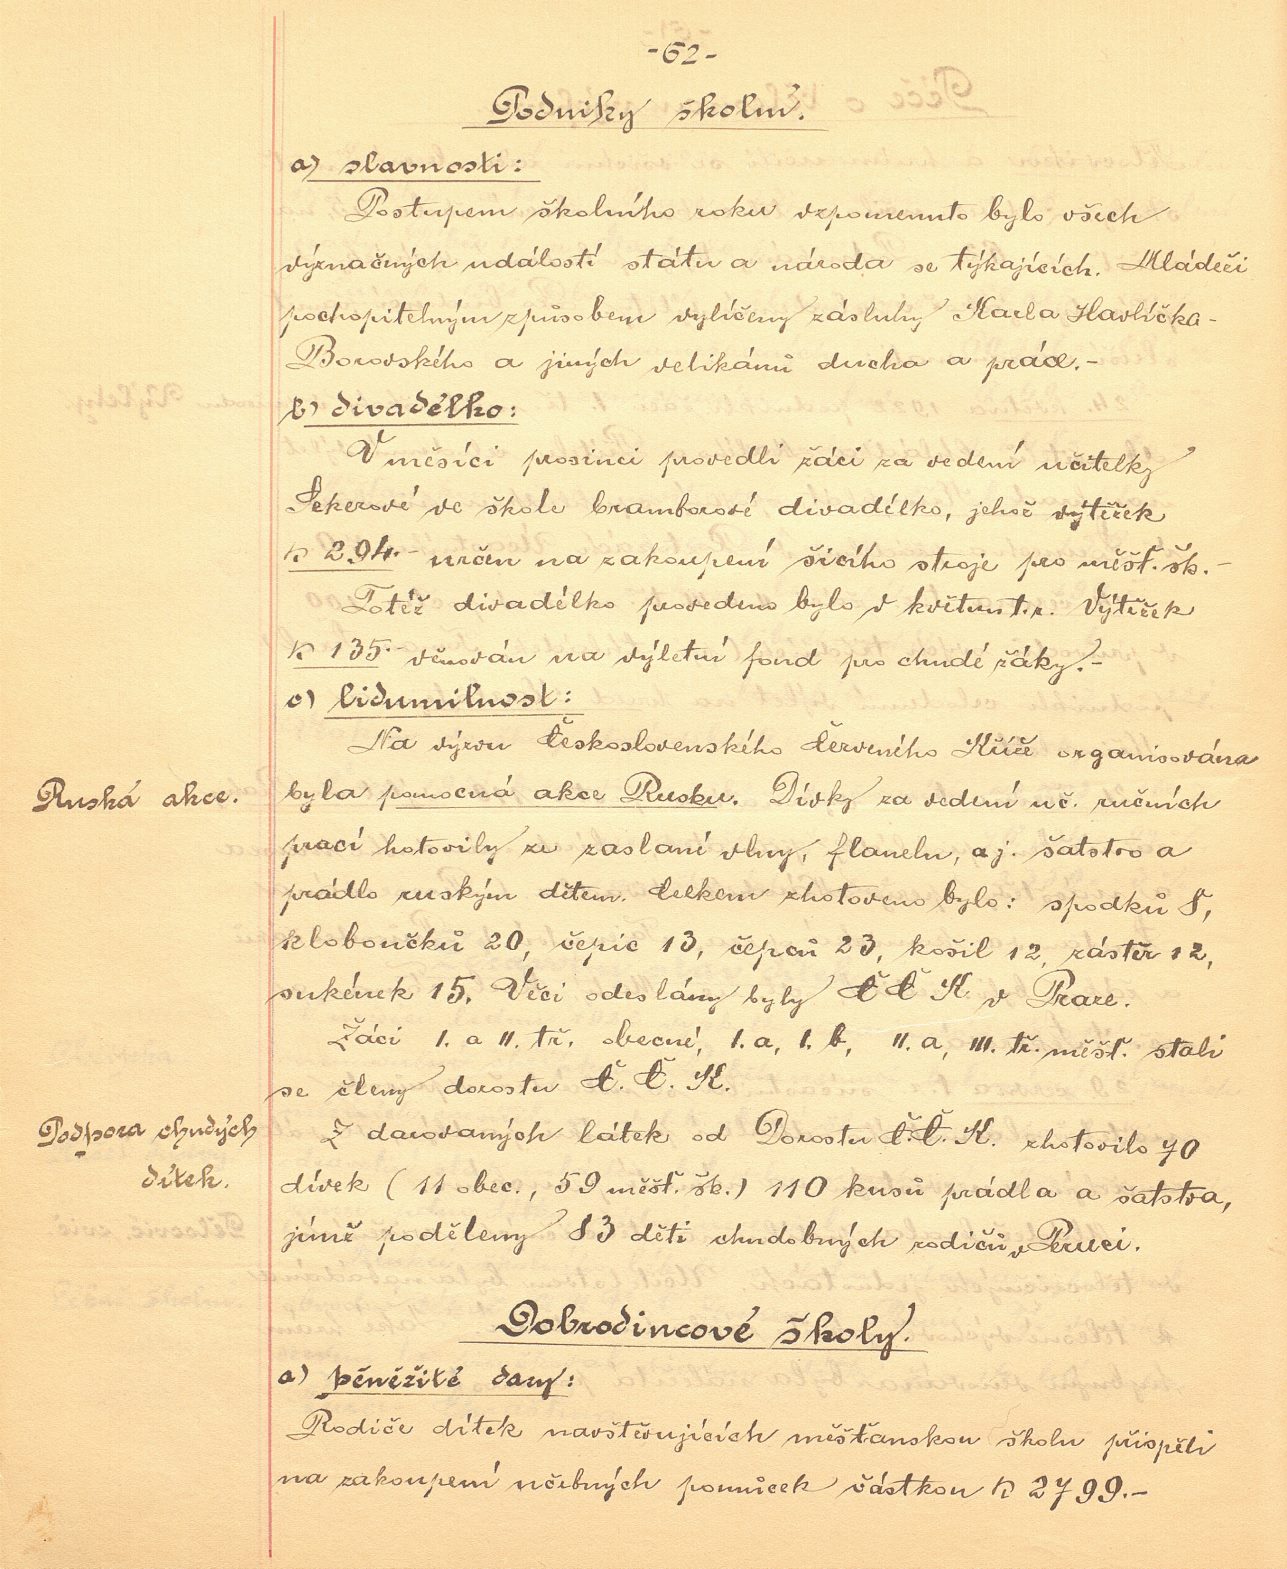 -62-
Podniky školní.
a) slavnosti:
Postupem školního roku vzpomenuto bylo všech
význačných událostí státu a národa se týkajících. Mládeži
pochopitelným způsobem vylíčeny zásluhy Karla Havlíčka-
Borovského a jiných velikánů ducha a práce.-
b) divadélko:
V měsíci prosinci provedli žáci za vedení učitelky
Pekerové ve škole bramborové divadélko, jehož výtěžek
K 294.- určen na zakoupení šicího stroje pro měšť. šk.-
Totéž divadélko provedeno bylo v květnu t.r. Výtěžek
K 135.- věnován na výletní fond pro chudé žáky.-
c) lidumilnost:
Na výzvu Československého Červeného Kříže organisována
Ruská akce.
byla pomocná akce Rusku. Dívky za vedení uč. ručních
prací hotovily ze zaslané vlny, flanelu, a j. šatstvo a
prádlo ruským dětem. Celkem zhotoveno bylo: spodků 8,
kloboučků 20, čepic 13, čepců 23, košil 12, zástěr 12,
sukének 15. Věci odeslány byly Č Č K v Praze.
Žáci I. a II. tř. obecné, I. a, I. b, II. a, III. tř. měšť. stali
se členy dorostu Č. Č. K.
Podpora chudých
dítek.
Z darovaných látek od Dorostu Č.Č. K. zhotovilo 70
dívek (11 obec., 59 měšť. šk.) 110 kusů prádla a šatstva,
jímž poděleny 83 děti chudobných rodičů v Peruci.
Dobrodincové školy.
a) peněžité dary:
Rodiče dítek navštěvujících měšťanskou školu přispěli
na zakoupení učebných pomůcek částkou K 2799.-